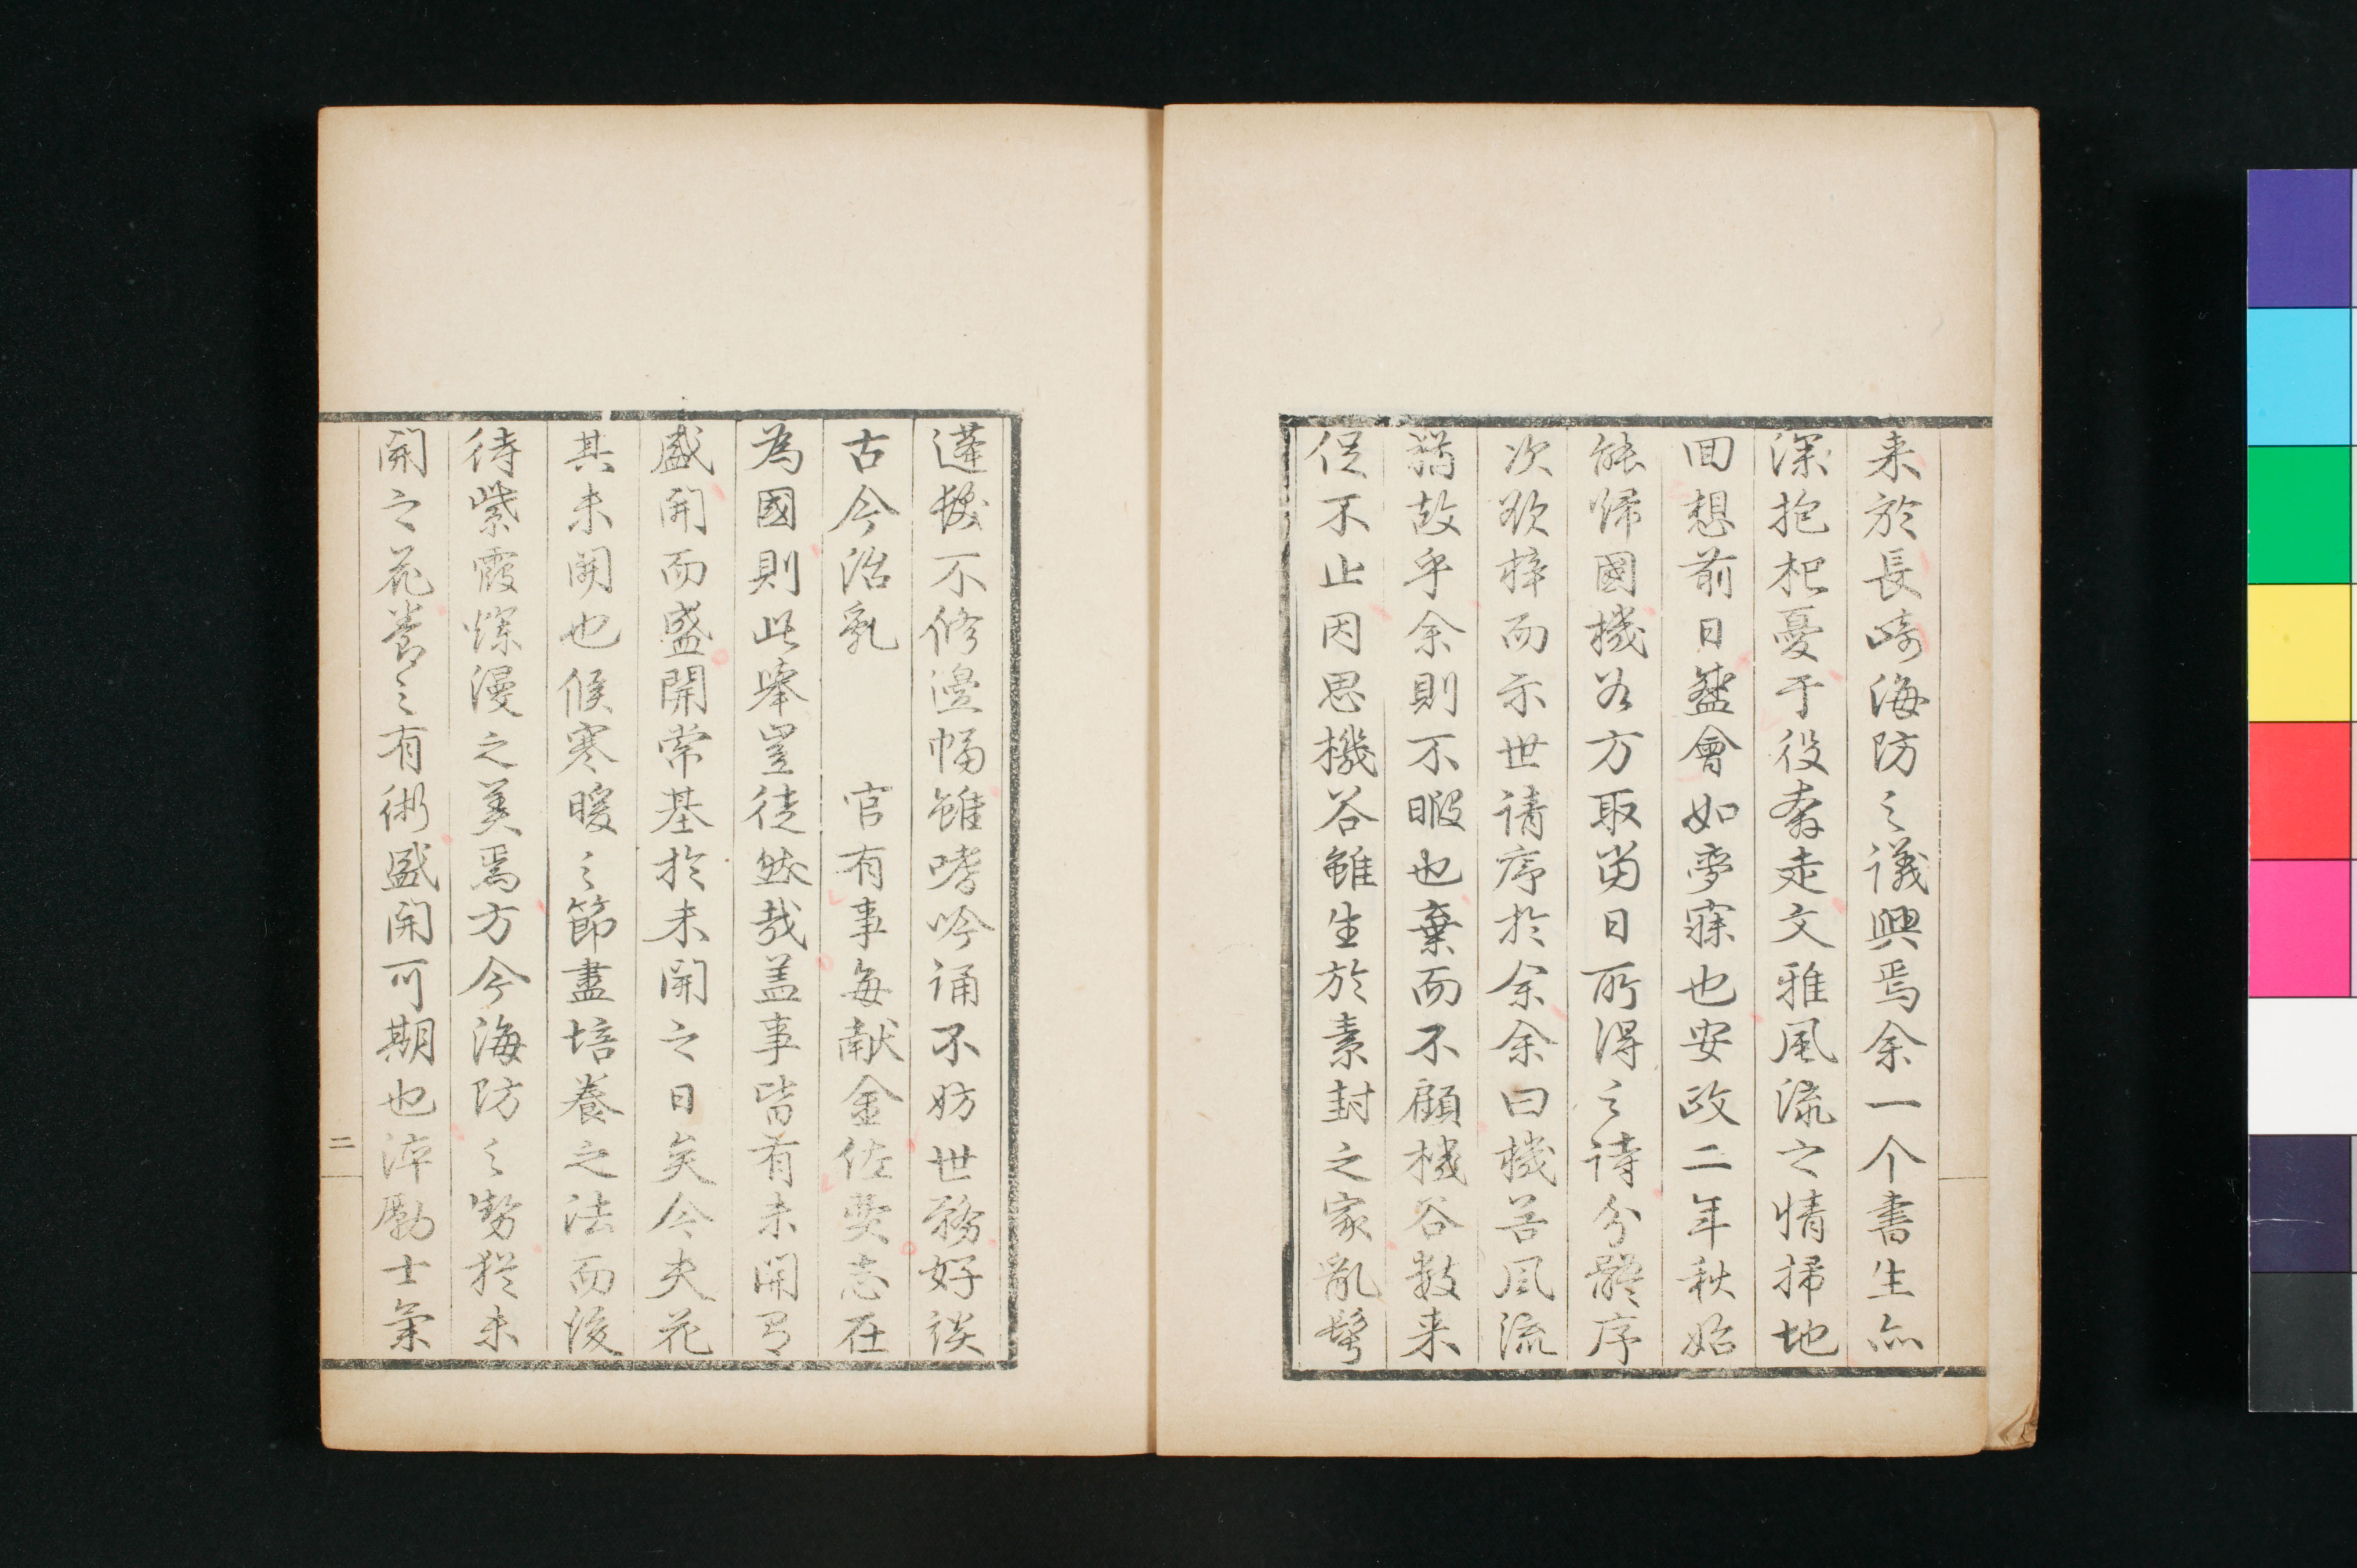 来於長崎海防之議興焉余一个書生亦
深抱杞憂于役奔走文雅風流之情掃地
回想前日盛會如夢寐也安政二年秋始
能帰國機谷方取當日所得之詩分體序
次欲梓而示世請序於余余曰機谷風流
猶故乎余則不暇也棄而不顧機谷数来
促不止因思機谷雖生於素封之家亂髩
蓬髮不修邊幅雖嗜吟誦不妨世務好談
古今治乱　官有事毎献金佐費志在
為國則此挙豈徒然哉盖事皆有未開有
盛開而盛開常基於未開之日矣今夫花
其未開也候寒暖之節盡培養之法而後
待紫霞爛漫之美焉方今海防之勢猶未
開之花養之有術盛開可期也淬勵士氣
二